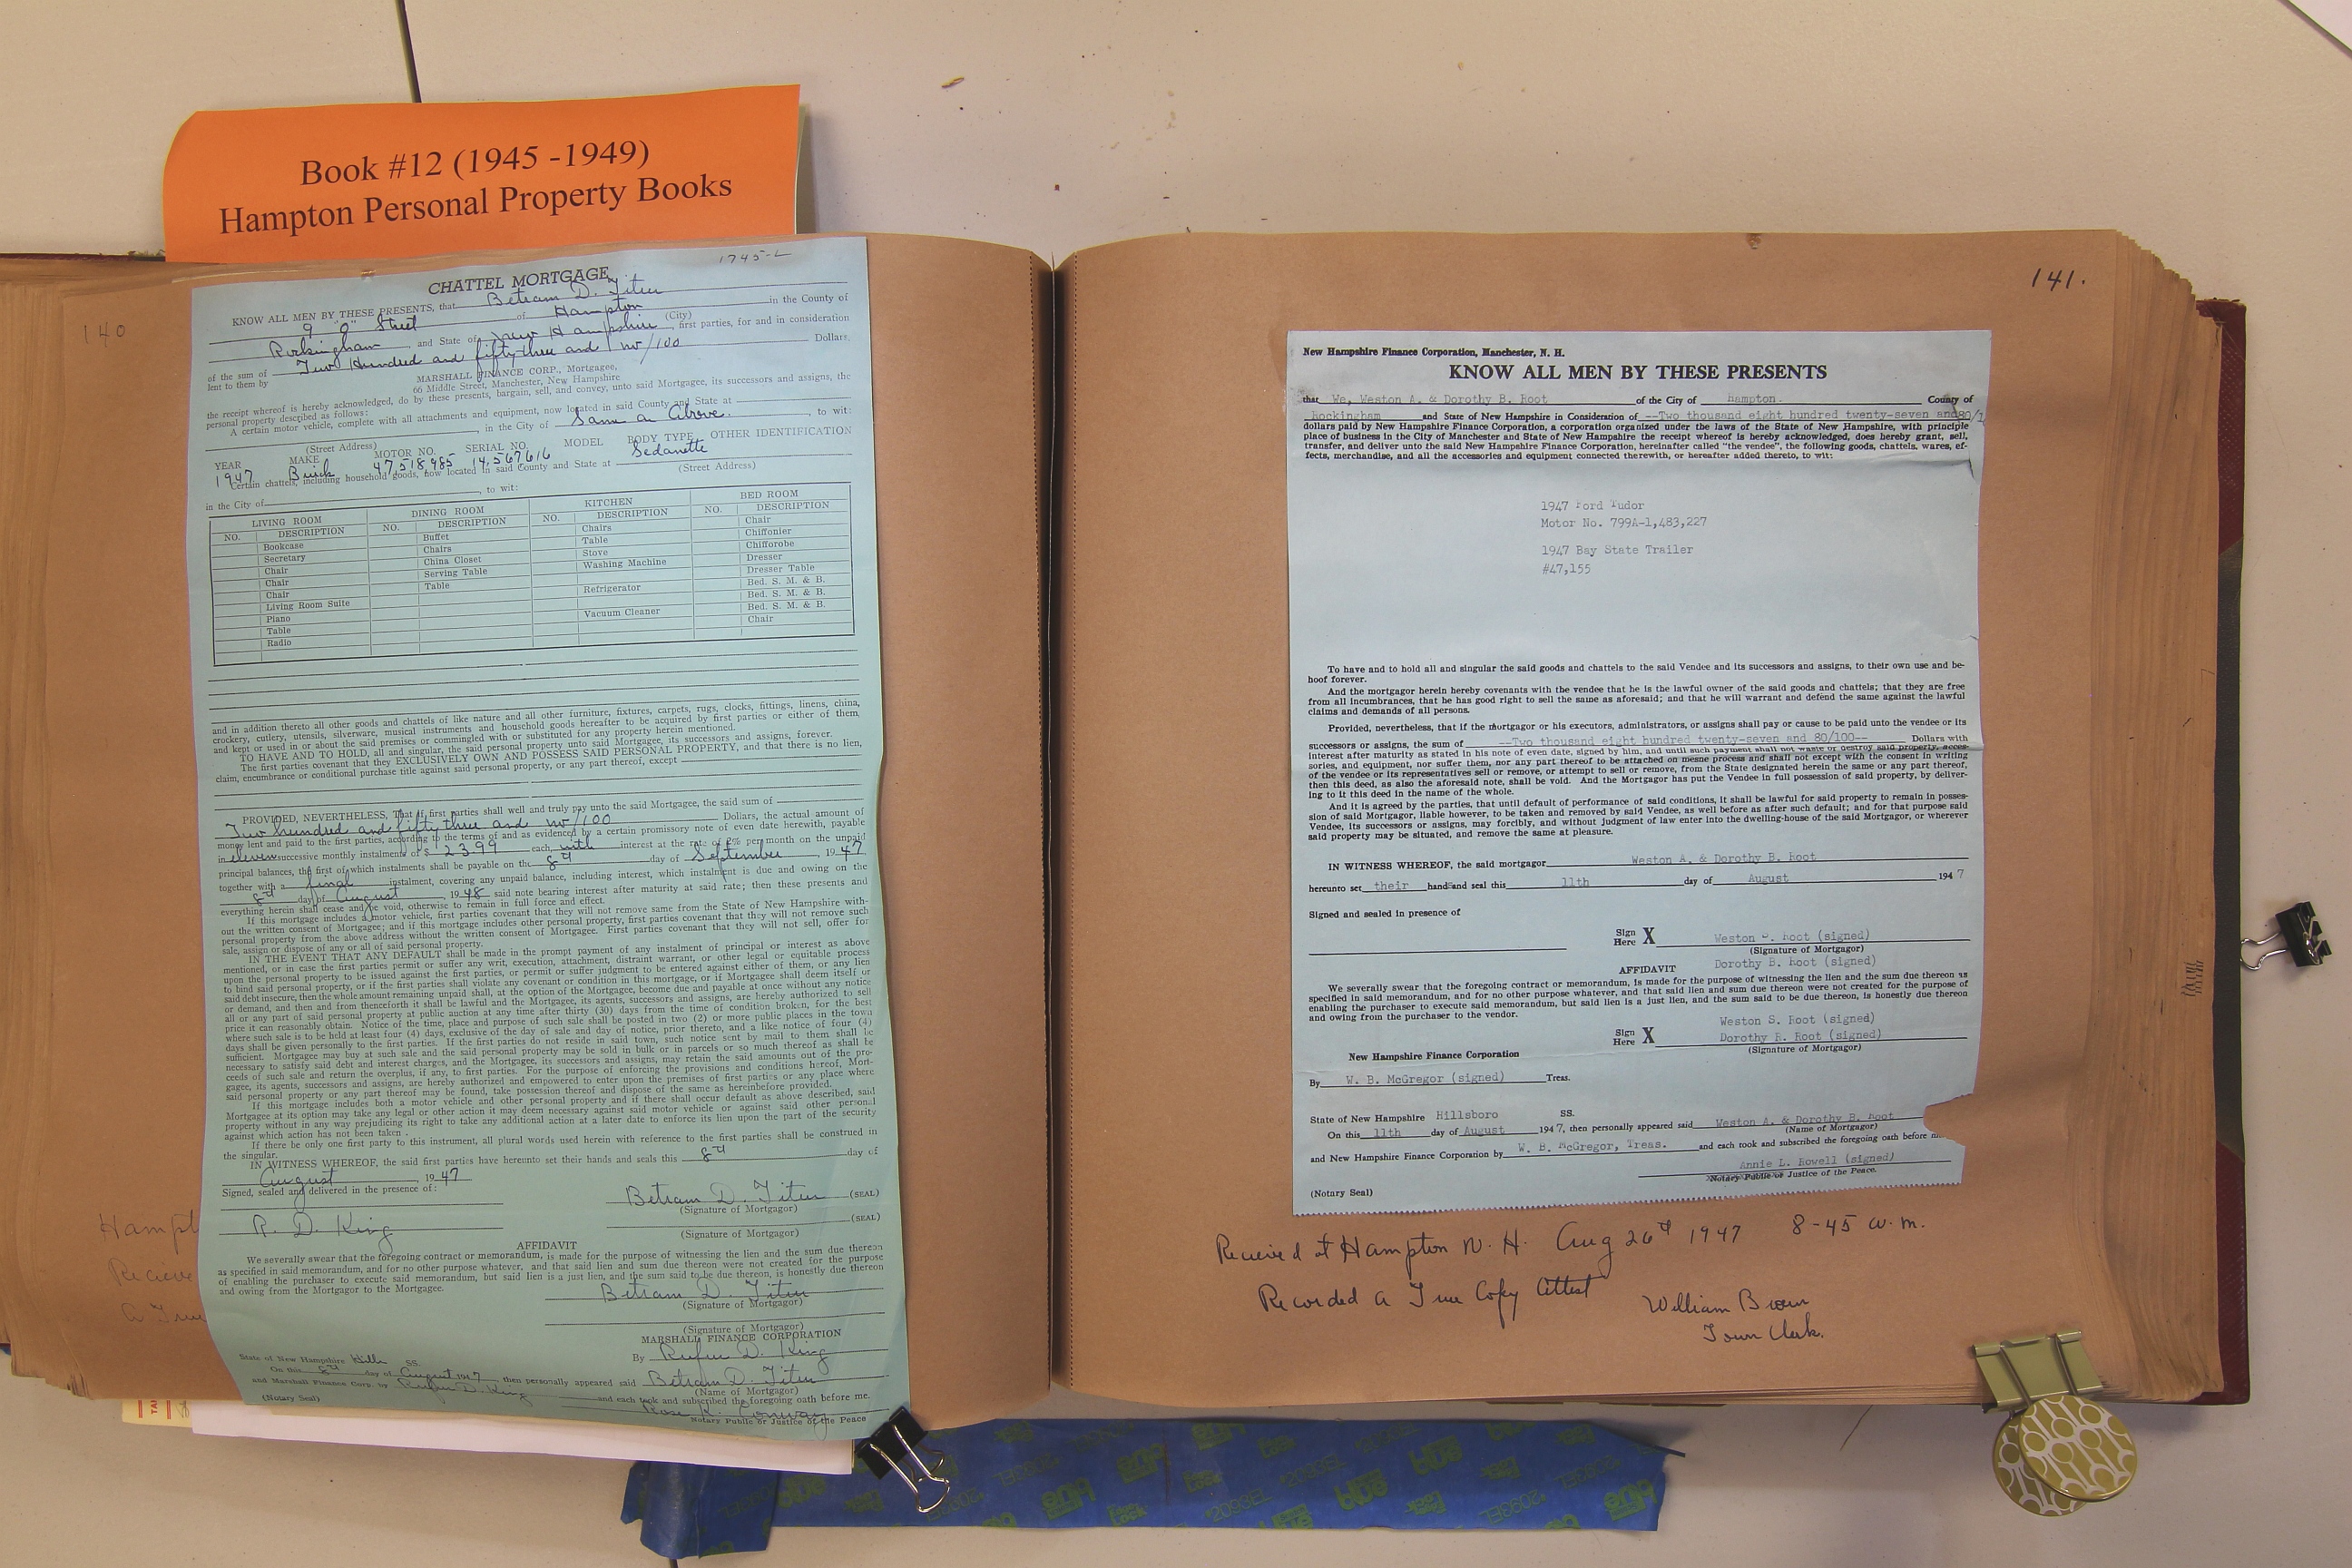 Book #12 (1945 -1949)
Hampton Personal Property Books
140
1745-L
CHATTEL MORTGAGE
KNOW ALL MEN BY THESE PRESENTS, that Betram D. Titus
9 "O" Street of Hampton in the County of
(City)
Rockingham, and State of New Hampshire, first parties, for and in consideration
of the sum of Two Hundred and fifty three and no/100 Dollars,
lent to them by
MARSHALL FINANCE CORP., Mortgagee,
66 Middle Street, Manchester, New Hampshire
the receipt whereof is hereby acknowledged, do by these presents, bargain, sell, and convey, unto said Mortgagee, its successors and assigns, the
personal property described as follows:
A certain motor vehicle, complete with all attachments and equipment, now located in said County and State at
, in the City of Same as Above. , to wit:
(Street Address)
YEAR MAKE MOTOR NO. SERIAL NO. MODEL BODY TYPE OTHER IDENTIFICATION
1947 Buick 47518985 14567616 Sedanette
Certain chattels, including household goods, now located in said County and State at
(Street Address)
in the City of , to wit:
LIVING ROOM DINING ROOM KITCHEN BED ROOM
NO. DESCRIPTION NO. DESCRIPTION NO. DESCRIPTION NO. DESCRIPTION
Bookcase Buffet Chairs Chair
Secretary Chairs Table Chiffonier
Chair China Closet Stove Chifforobe
Chair Serving Table Washing Machine Dresser
Chair Table Dresser Table
Living Room Suite Refrigerator Bed. S. M. & B.
Piano Bed. S. M. & B.
Table Vacuum Cleaner Bed. S. M. & B.
Radio Chair
and in addition thereto all other goods and chattels of like nature and all other furniture, fixtures, carpets, rugs, clocks, fittings, linens, china,
crockery, cutlery, utensils, silverware, musical instruments and household goods hereafter to be acquired by first parties or either of them,
and kept or used in or about the said premises or commingled with or substituted for any property herein mentioned.
TO HAVE AND TO HOLD, all and singular, the said personal property unto said Mortgagee, its successors and assigns, forever.
The first parties covenant that they EXCLUSIVELY OWN AND POSSESS SAID PERSONAL PROPERTY, and that there is no lien,
claim, encumbrance or conditional purchase title against said personal property, or any part thereof, except
PROVIDED, NEVERTHELESS, That if first parties shall well and truly pay unto the said Mortgagee, the said sum of
Two hundred and fifty three and no/100 Dollars, the actual amount of
money lent and paid to the first parties, according to the terms of and as evidenced by a certain promissory note of even date herewith, payable
in eleven successive monthly instalments of $ 23.99 each, with interest at the rate of 2% per month on the unpaid
principal balances, the first of which instalments shall be payable on the 8th day of September, 1947
together with a final instalment, covering any unpaid balance, including interest, which instalment is due and owing on the
8th day of August, 1948 said note bearing interest after maturity at said rate; then these presents and
everything herein shall cease and be void, otherwise to remain in full force and effect.
If this mortgage includes a motor vehicle, first parties covenant that they will not remove same from the State of New Hampshire with-
out the written consent of Mortgagee; and if this mortgage includes other personal property, first parties covenant that they will not remove such
personal property from the above address without the written consent of Mortgagee. First parties covenant that they will not sell, offer for
sale, assign or dispose of any or all of said personal property.
IN THE EVENT THAT ANY DEFAULT shall be made in the prompt payment of any instalment of principal or interest as above
mentioned, or in case the first parties permit or suffer any writ, execution, attachment, distraint warrant, or other legal or equitable process
upon the personal property to be issued against the first parties, or permit or suffer judgment to be entered against either of them, or any lien
to bind said personal property, or if the first parties shall violate any covenant or condition in this mortgage, or if Mortgagee shall deem itself or
said debt insecure, then the whole amount remaining unpaid shall, at the option of the Mortgagee, become due and payable at once without any notice
or demand, and then and from thenceforth it shall be lawful and the Mortgagee, its agents, successors and assigns, are hereby authorized to sell
all or any part of said personal property at public auction at any time after thirty (30) days from the time of condition broken, for the best
price it can reasonably obtain. Notice of the time, place and purpose of such sale shall be posted in two (2) or more public places in the town
where such sale is to be held at least four (4) days, exclusive of the day of sale and day of notice, prior thereto, and a like notice of four (4)
days shall be given personally to the first parties. If the first parties do not reside in said town, such notice sent by mail to them shall be
sufficient. Mortgagee may buy at such sale and the said personal property may be sold in bulk or in parcels or so much thereof as shall be
necessary to satisfy said debt and interest charges, and the Mortgagee, its successors and assigns, may retain the said amounts out of the pro-
ceeds of such sale and return the overplus, if any, to first parties. For the purpose of enforcing the provisions and conditions hereof, Mort-
gagee, its agents, successors and assigns, are hereby authorized and empowered to enter upon the premises of first parties or any place where
said personal property or any part thereof may be found, take possession thereof and dispose of the same as hereinbefore provided.
If this mortgage includes both a motor vehicle and other personal property and if there shall occur default as above described, said
Mortgagee at its option may take any legal or other action it may deem necessary against said motor vehicle or against said other personal
property without in any way prejudicing its right to take any additional action at a later date to enforce its lien upon the part of the security
against which action has not been taken.
If there be only one first party to this instrument, all plural words used herein with reference to the first parties shall be construed in
the singular.
IN WITNESS WHEREOF, the said first parties have hereunto set their hands and seals this 8th day of
August, 1947
Signed, sealed and delivered in the presence of:
Betram D. Titus (SEAL)
(Signature of Mortgagor)
R. D. King (SEAL)
(Signature of Mortgagor)
AFFIDAVIT
We severally swear that the foregoing contract or memorandum, is made for the purpose of witnessing the lien and the sum due thereon
as specified in said memorandum, and for no other purpose whatever, and that said lien and sum due thereon were not created for the purpose
of enabling the purchaser to execute said memorandum, but said lien is a just lien, and the sum said to be due thereon, is honestly due thereon
and owing from the Mortgagor to the Mortgagee.
Betram D. Titus
(Signature of Mortgagor)
(Signature of Mortgagor)
MARSHALL FINANCE CORPORATION
By Rufus D. King
State of New Hampshire Hills SS.
On this 8th day of August 1947 then personally appeared said Betram D. Titus
(Name of Mortgagor)
and Marshall Finance Corp. by Rufus D. King and each took and subscribed the foregoing oath before me.
(Notary Seal) Rose K. Conway
Notary Public or Justice of the Peace
Hampt
Recieve
A True
141.
New Hampshire Finance Corporation, Manchester, N. H.
KNOW ALL MEN BY THESE PRESENTS
that We, Weston A. & Dorothy B. Root of the City of hampton. County of
Rockingham and State of New Hampshire in Consideration of --Two thousand eight hundred twenty-seven and80/1
dollars paid by New Hampshire Finance Corporation, a corporation organized under the laws of the State of New Hampshire, with principle
place of business in the City of Manchester and State of New Hampshire the receipt whereof is hereby acknowledged, does hereby grant, sell,
transfer, and deliver unto the said New Hampshire Finance Corporation, hereinafter called "the vendee", the following goods, chattels, wares, ef-
fects, merchandise, and all the accessories and equipment connected therewith, or hereafter added thereto, to wit:
1947 Ford Tudor
Motor No. 799A-1,483,227
1947 Bay State Trailer
#47,155
To have and to hold all and singular the said goods and chattels to the said Vendee and its successors and assigns, to their own use and be-
hoof forever.
And the mortgagor herein hereby covenants with the vendee that he is the lawful owner of the said goods and chattels; that they are free
from all incumbrances, that he has good right to sell the same as aforesaid; and that he will warrant and defend the same against the lawful
claims and demands of all persons.
Provided, nevertheless, that if the mortgagor or his executors, administrators, or assigns shall pay or cause to be paid unto the vendee or its
successors or assigns, the sum of --Two thousand eight hundred twenty-seven and 80/100-- Dollars with
interest after maturity as stated in his note of even date, signed by him, and until such payment shall not waste or destroy said property, acces-
sories, and equipment, nor suffer them, nor any part thereof to be attached on mesne process and shall not except with the consent in writing
of the vendee or its representatives sell or remove, or attempt to sell or remove, from the State designated herein the same or any part thereof,
then this deed, as also the aforesaid note, shall be void. And the Mortgagor has put the Vendee in full possession of said property, by deliver-
ing to it this deed in the name of the whole.
And it is agreed by the parties, that until default of performance of said conditions, it shall be lawful for said property to remain in posses-
sion of said Mortgagor, liable however, to be taken and removed by said Vendee, as well before as after such default; and for that purpose said
Vendee, its successors or assigns, may forcibly, and without judgment of law enter into the dwelling-house of the said Mortgagor, or wherever
said property may be situated, and remove the same at pleasure.
IN WITNESS WHEREOF, the said mortgagor Weston A. & Dorothy B. Root
hereunto set their hand and seal this 11th day of August 1947
Signed and sealed in presence of
Sign Here X Weston S. Root (signed)
(Signature of Mortgagor)
Dorothy B. Root (signed)
AFFIDAVIT
We severally swear that the foregoing contract or memorandum, is made for the purpose of witnessing the lien and the sum due thereon as
specified in said memorandum, and for no other purpose whatever, and that said lien and sum due thereon were not created for the purpose of
enabling the purchaser to execute said memorandum, but said lien is a just lien, and the sum said to be due thereon, is honestly due thereon
and owing from the purchaser to the vendor.
Weston S. Root (signed)
Sign Here X Dorothy B. Root (signed)
(Signature of Mortgagor)
New Hampshire Finance Corporation
By W. B. McGregor (signed) Treas.
State of New Hampshire Hillsboro SS.
On this 11th day of August 1947, then personally appeared said Weston A. & Dorothy B. Root
(Name of Mortgagor)
and New Hampshire Finance Corporation by W. B. McGregor, Treas. and each took and subscribed the foregoing oath before
Annie L. Rowell (signed)
Notary Public or Justice of the Peace.
(Notary Seal)
Recieved at Hampton N. H. Aug 26th 1947 8-45 a.m.
Recorded a True Copy Attest
William Brown
Town Clerk.